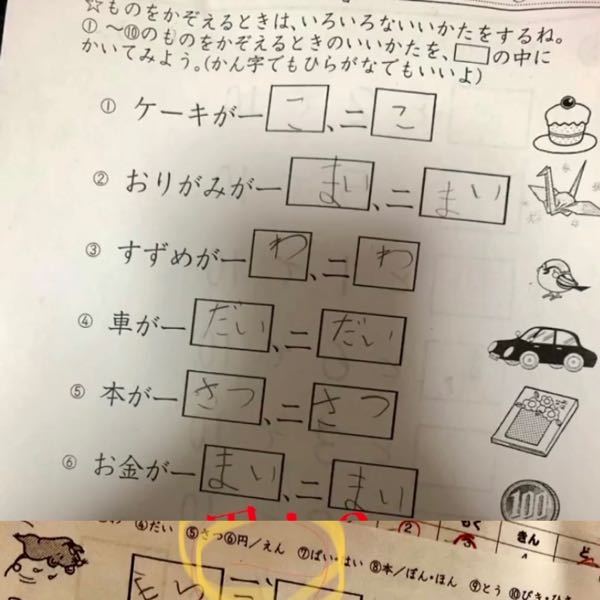 ☆ものをかぞえるときは、いろいろないいかたをするね。
①～⑩のものをかぞえるときのいいかたを、□の中に
かいてみよう。(かん字でもひらがなでもいいよ)
① ケーキが一こ、二こ
② おりがみが一まい、二まい
③ すずめが一わ、二わ
④ 車が一だい、二だい
⑤ 本が一さつ、二さつ
⑥ お金が一まい、二まい
100
④だい ⑤さつ⑥円/えん ⑦ぱい・はい ⑧本/ぽん・ほん ⑨とう ⑩ぴき・ひき
② きん ど